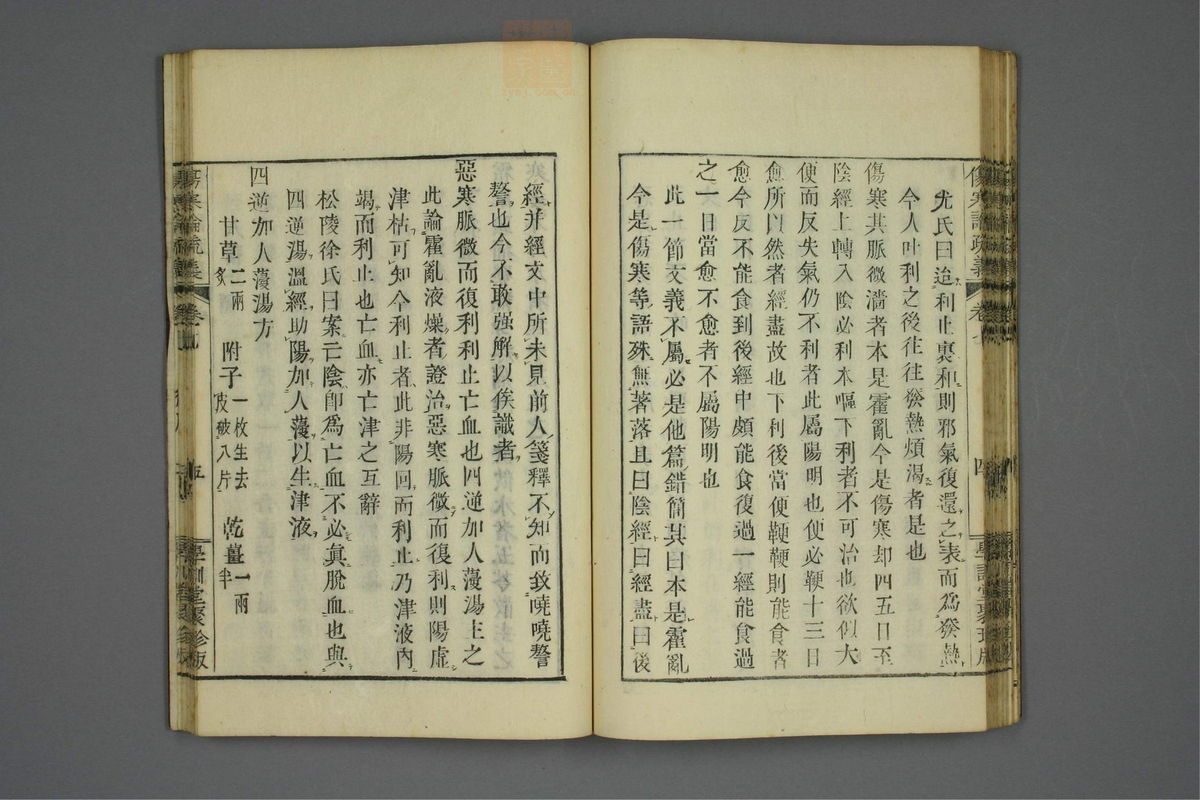 尤氏曰迨利止裏和則邪氣復還之表而為發熱
今人吐利之後往往發熱煩渴者是也
傷寒其脈微濇者本是霍亂今是傷寒却四五日至
陰經上轉入陰必利本嘔下利者不可治也欲似大
便而反失氣仍不利者此屬陽明也便必鞕十三日
愈所以然者經盡故也下利後當便鞕鞕則能食者
愈今反不能食到後經中頗能食復過一經能食過
之一日當愈不愈者不屬陽明也
此一節文義不屬必是他篇錯簡其曰本是霍亂
今是傷寒等語殊無著落且曰陰經曰經盡曰後
傷寒論疏義
卷
四
學訓堂聚珍版
經并經文中所未見前人箋釋不知向致曉曉謷
謷也今不敢強解以俟識者
惡寒脈微而復利利止亡血也四逆加人薓湯主之
此論霍亂液燥者證治惡寒脈微而復利則陽虛
津枯可知今利止者此非陽回而利止乃津液內
竭而利止也亡血亦亡津之互辭
松陵徐氏曰案亡陰卽為亡血不必真脫血也與
四逆湯溫經助陽加人薓以生津液
四逆加人薓湯方
甘草二兩炙 附子一枚生去皮破八片 乾薑一兩半
傷寒論疏義
卷七
五
學訓堂聚珍版